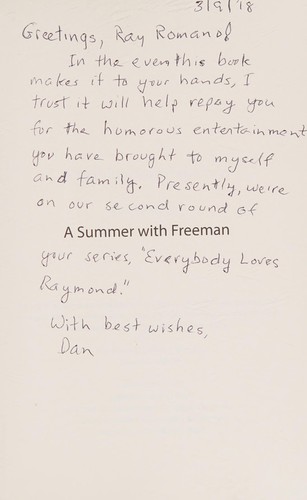 3/9/'18
Greetings, Ray Romano!
In the even this book
makes it to your hands, I
trust it will help repay you
for the humorous entertainment
you have brought to myself
and family. Presently, we're
on our second round of
A Summer with Freeman
your series, "Everybody Loves
Raymond."
With best wishes,
Dan